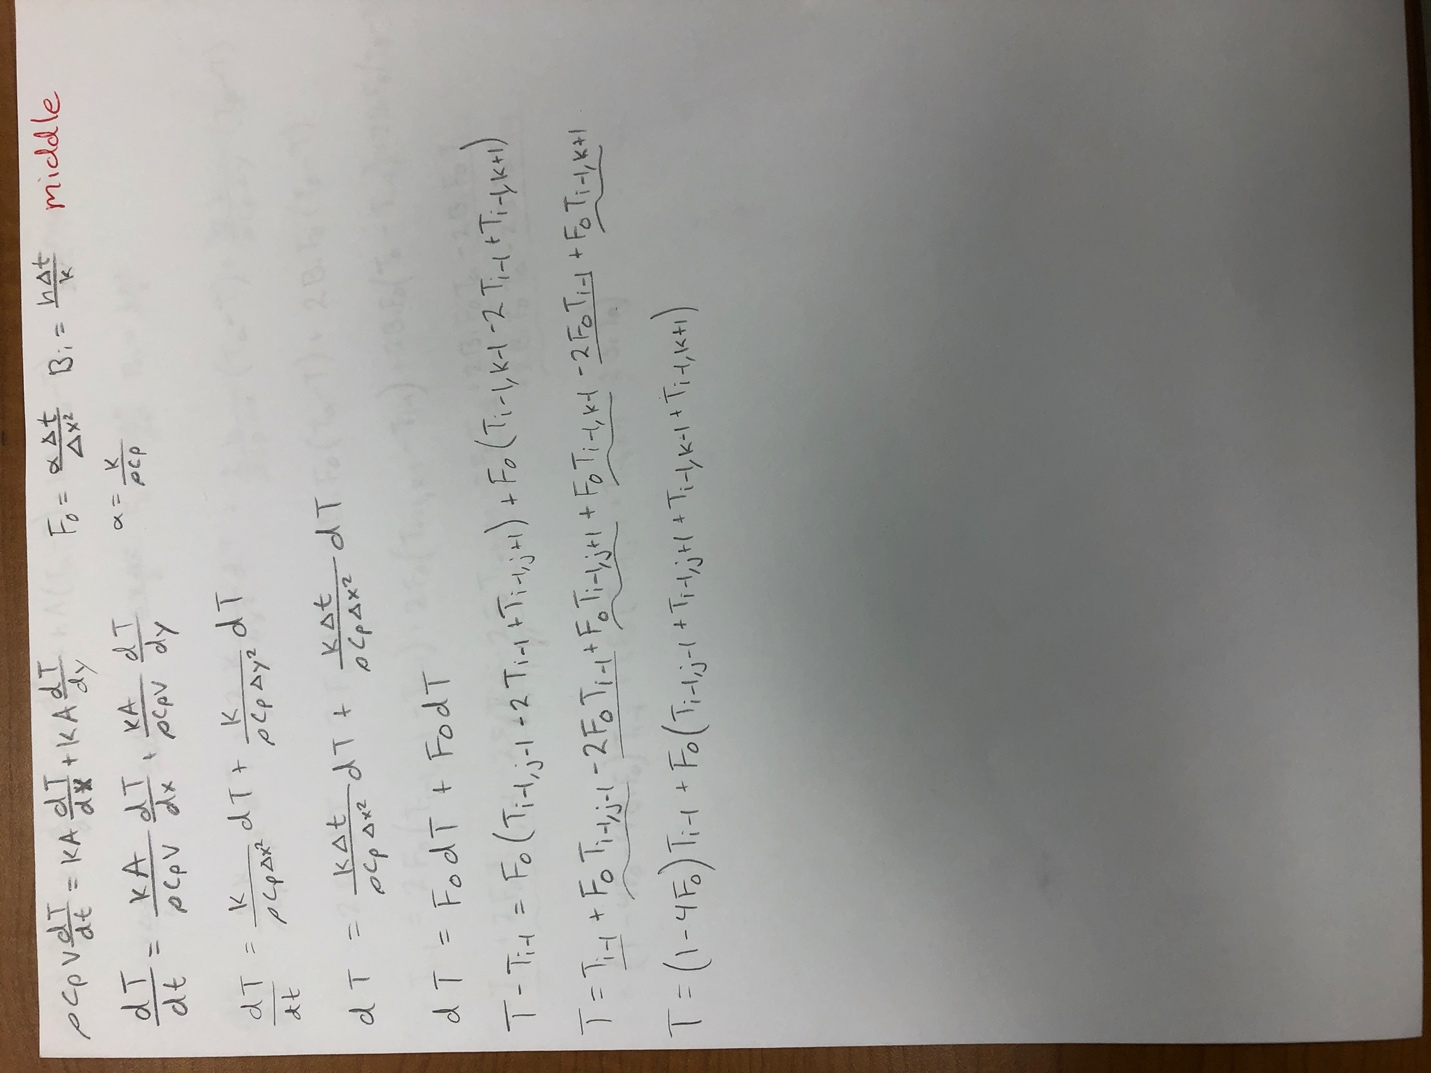 ρCpV dT/dt = KA dT/dx + KA dT/dy    Fo = αΔt/Δx²  Bi = hΔt/k  middle
dT/dt = KA/ρCpV dT/dx + KA/ρCpV dT/dy    α = K/ρCp
dT/dt = K/ρCpΔx² dT + K/ρCpΔy² dT
dT = KΔt/ρCpΔx² dT + KΔt/ρCpΔx² dT
dT = FodT + FodT
T - Ti-1 = Fo(Ti-1,j-1 - 2Ti-1 + Ti-1,j+1) + Fo(Ti-1,k-1 - 2Ti-1 + Ti-1,k+1)
T = Ti-1 + FoTi-1,j-1 - 2FoTi-1 + FoTi-1,j+1 + FoTi-1,k-1 - 2FoTi-1 + FoTi-1,k+1
T = (1-4Fo)Ti-1 + Fo(Ti-1,j-1 + Ti-1,j+1 + Ti-1,k-1 + Ti-1,k+1)